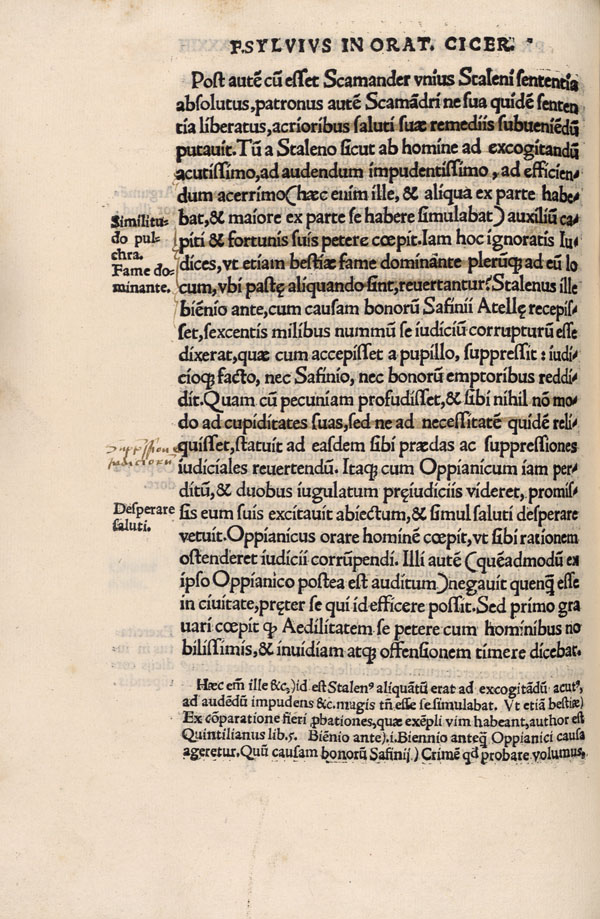 P.SYLVIVS IN ORAT. CICER.
Post autē cū esset Scamander vnius Staleni sententia
absolutus,patronus autē Scamādri ne sua quidē senten
tia liberatus,acrioribus saluti suæ remediis subueniēdū
putauit.Tū a Staleno sicut ab homine ad excogitandū
acutissimo,ad audendum impudentissimo, ad efficien⸗
dum acerrimo(hæc enim ille, & aliqua ex parte habe⸗
bat,& maiore ex parte se habere simulabat) auxiliū ca⸗
piti & fortunis suis petere cœpit.Iam hoc ignoratis Iu⸗
dices,vt etiam bestiæ fame dominante plerūq; ad eū lo
cum,vbi pastę aliquando sint,reuertantur? Stalenus ille
biēnio ante,cum causam bonorū Safinii Atellę recepis⸗
set,sexcentis milibus nummū se iudiciū corrupturū esse
dixerat,quæ cum accepisset a pupillo, suppressit : iudi⸗
cioq; facto, nec Safinio, nec bonorū emptoribus reddi⸗
dit.Quam cū pecuniam profudisset,& sibi nihil nō mo⸗
do ad cupiditates suas,sed ne ad necessitatē quidē reli⸗
quisset,statuit ad easdem sibi prædas ac suppressiones
iudiciales reuertendū. Itaq; cum Oppianicum iam per⸗
ditū,& duobus iugulatum pręiudiciis videret, promis⸗
sis eum suis excitauit abiectum,& simul saluti desperare
vetuit.Oppianicus orare hominē cœpit,vt sibi rationem
ostenderet iudicii corrūpendi. Illi autē (quēadmodū ex
ipso Oppianico postea est auditum)negauit quenq̄ esse
in ciuitate,pręter se qui id efficere possit.Sed primo gra
uari cœpit ꝙ Aedilitatem se petere cum hominibus no
bilissimis,& inuidiam atq; offensionem timere dicebat.
Similitu⸗
do pul⸗
chra.
Fame do⸗
minante.
Suppressiones
iudiciorū
Desperare
saluti.
Hæc em̄ ille &c,)id est Stalenꝰ aliquātū erat ad excogitādū acutꝰ,
ad audēdū impudens &c.magis tn̄ esse se simulabat. Vt etiā bestiæ)
Ex cōparatione fieri ꝓbationes,quæ exēpli vim habeant,author est
Quintilianus lib.5. Biēnio ante).i.Biennio anteq̄ Oppianici causa
ageretur. Quū causam bonorū Safinij.) Crimē qd̄ probare volumus,